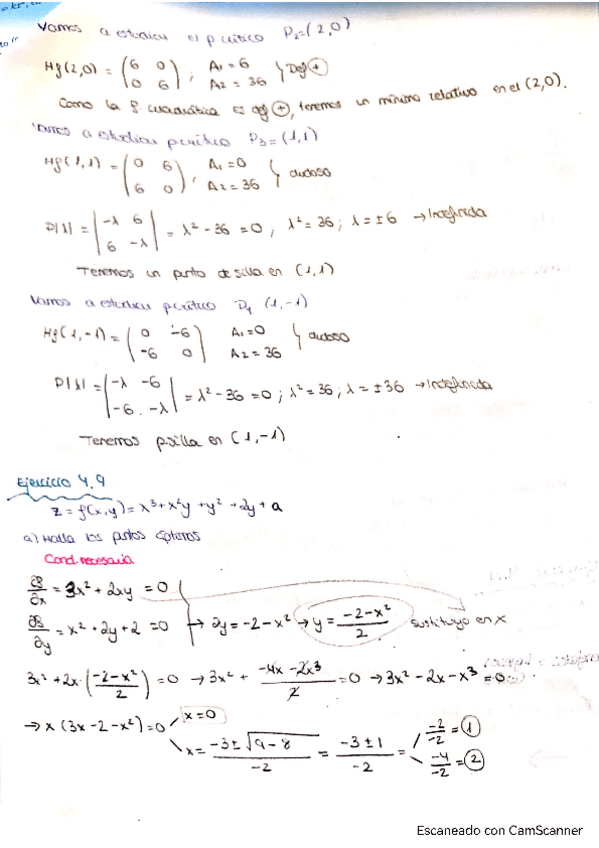 Vamos a estudiar el p.critico P₂=(2,0)
Hf(2,0) = (6 0 / 0 6) ; A₁ = 6 A₂ = 36 } Def ⊕
Como la f. cuadrática es def ⊕, tenemos un mínimo relativo en el (2,0).
Vamos a estudiar p.critico P₃=(1,1)
Hf(1,1) = (0 6 / 6 0) , A₁=0 A₂=36 } dudoso
P|λ| = |-λ 6 / 6 -λ| = λ²-36=0 ; λ²=36 ; λ=±6 → Indefinida
Tenemos un punto de silla en (1,1)
Vamos a estudiar p.critico P₄ (1,-1)
Hf(1,-1) = (0 -6 / -6 0) A₁=0 A₂=36 } dudoso
P|λ| = |-λ -6 / -6 -λ| = λ²-36=0 ; λ²=36 ; λ=±36 → Indefinida
Tenemos p.silla en (1,-1)
Ejercicio 4.9
z = f(x,y) = x³+x²y+y²+2y+a
a) Halla los puntos óptimos
Cond. necesaria
∂f/∂x = 3x²+2xy = 0
∂f/∂y = x²+2y+2 = 0 → 2y = -2-x² → y = (-2-x²)/2 sustituyo en x
3x²+2x·((-2-x²)/2) = 0 → 3x² + (-4x-2x³)/2 = 0 → 3x²-2x-x³ = 0
→ x(3x-2-x²) = 0 x=0
x = (-3±√(9-8))/-2 = (-3±1)/-2 = -2/-2 = 1
-4/-2 = 2
Escaneado con CamScanner